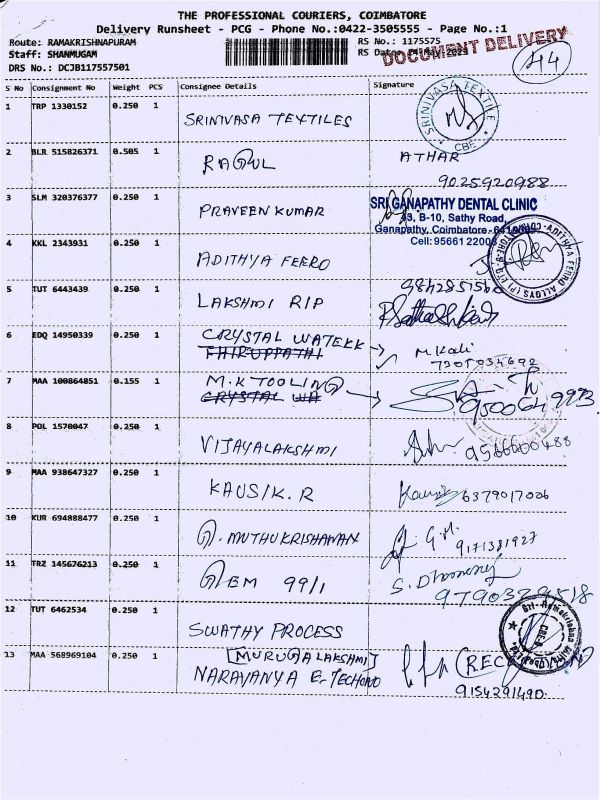 THE PROFESSIONAL COURIERS, COIMBATORE
Delivery Runsheet - PCG - Phone No.:0422-3505555 - Page No.:1
Route: RAMAKRISHNAPURAM
Staff: SHANMUGAM
DRS No.: DCJB117557501
RS No.: 1175575
RS Date: 24-May-2023
DOCUMENT DELIVERY
S No Consignment No Weight PCS Consignee Details Signature
1 TRP 1330152 0.250 1 SRINIVASA TEXTILES
SRINIVASA TEXTILE CBE
2 BLR 515826371 0.505 1 RAGUL ATHAR
9025920988
3 SLM 320376377 0.250 1 PRAVEEN KUMAR
SRI GANAPATHY DENTAL CLINIC
B-10, Sathy Road,
Ganapathy, Coimbatore
Cell: 95661 22003
4 KKL 2343931 0.250 1 ADITHYA FEERO
ADITHYA FERRO ALLOYS (P) LTD
5 TUT 6443439 0.250 1 LAKSHMI RIP
6 EDQ 14950339 0.250 1 CRYSTAL WATEKK
M Kali
7305034692
7 MAA 100864851 0.155 1 M.K TOOLING
CRYSTAL WA
9500649993
8 POL 1570047 0.250 1 VIJAYALAKSHMI
9 MAA 938647327 0.250 1 KAUSIK.R
6379017006
10 KUR 694888477 0.250 1 G. MUTHUKRISHANAN
9171381927
11 TRZ 145676213 0.250 1 GEM 99/1
S. Dhanaraj
9790329518
12 TUT 6462534 0.250 1 SWATHY PROCESS
13 MAA 568969104 0.250 1 [MURUGALAKSHMI]
NARAYANYA E-TECHNO
9154291490